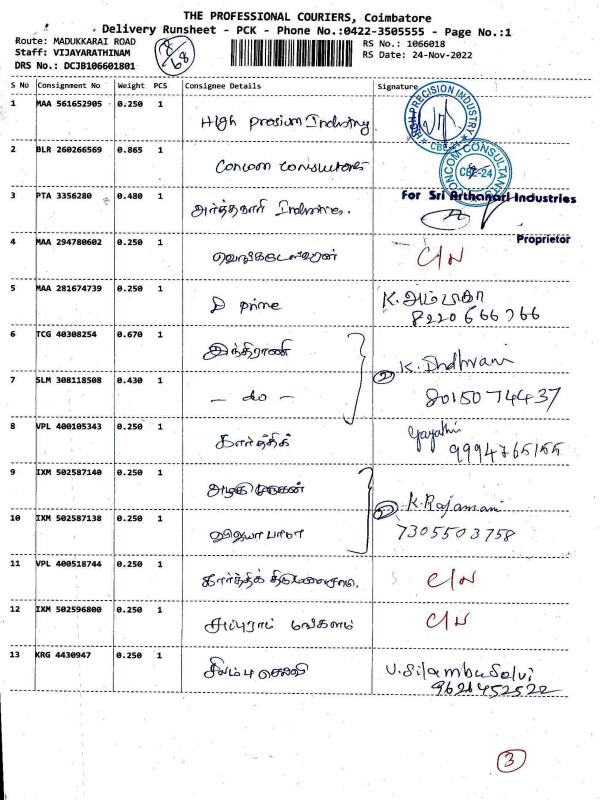 THE PROFESSIONAL COURIERS, Coimbatore
Delivery Runsheet - PCK - Phone No.:0422-3505555 - Page No.:1
Route: MADUKKARAI ROAD
RS No.: 1066018
Staff: VIJAYARATHINAM
RS Date: 24-Nov-2022
DRS No.: DCJB106601801
S No Consignment No Weight PCS Consignee Details Signature
1 MAA 561652905 0.250 1 High Presium Industry
HIGH PRECISION INDUSTRY CBE-21
2 BLR 260266569 0.865 1 Concom Consultants
CONCOM CONSULTANTS CBE-24
3 PTA 3356280 0.480 1 அர்த்தநாரி Industries.
For Sri Arthanari Industries
Proprietor
4 MAA 294780602 0.250 1 வெங்கடேஸ்வரன் C/N
5 MAA 281674739 0.250 1 D Prime K. அம்பிகா
8220666766
6 TCG 40308254 0.670 1 இந்திராணி
② K. Indhrani
7 SLM 308118508 0.430 1 - do - 8015074437
8 VPL 400105343 0.250 1 கார்த்திக் Gayathri
9994765155
9 IXM 502587140 0.250 1 அழகு முருகன்
② K. Rajamani
10 IXM 502587138 0.250 1 விஜயா பாமா 7305503758
11 VPL 400518744 0.250 1 கார்த்திக் திருமலைசாமி. C/N
12 IXM 502596800 0.250 1 அப்புராம் மங்களம் C/N
13 KRG 4430947 0.250 1 சிலம்பு செல்வி V. Silambu Selvi
9626452522
3